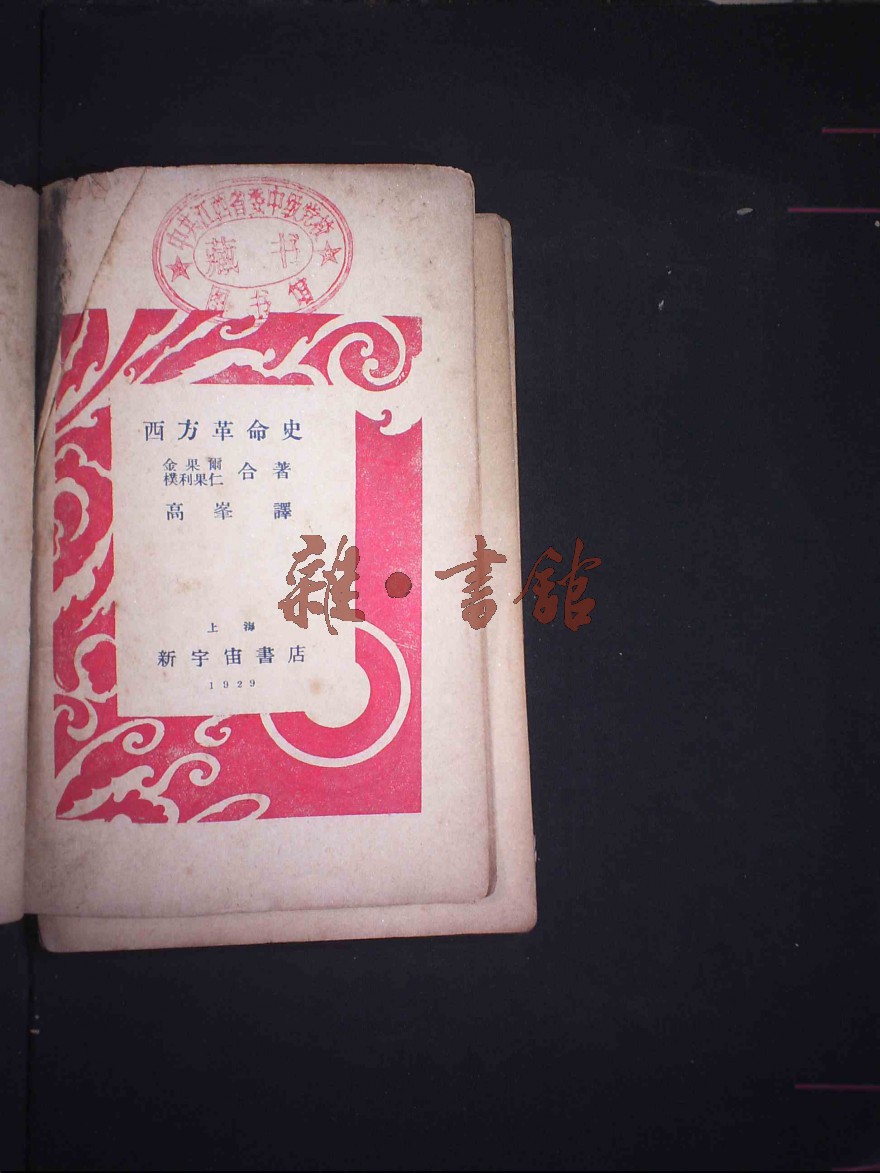 中共江西省委中级党校
藏书
图书馆
西方革命史
金果爾
樸利果仁 合著
高峯譯
雜·書館
上海
新宇宙書店
1929